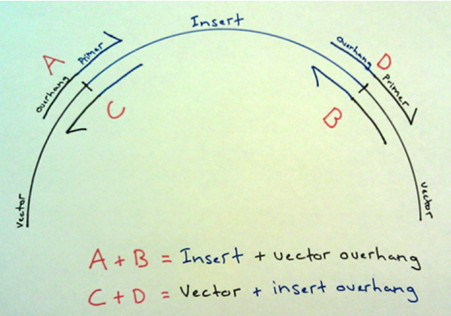 Insert
A
Overhang Primer
C
Overhang D
Primer
B
Vector
Vector
A + B = Insert + vector overhang
C + D = Vector + insert overhang